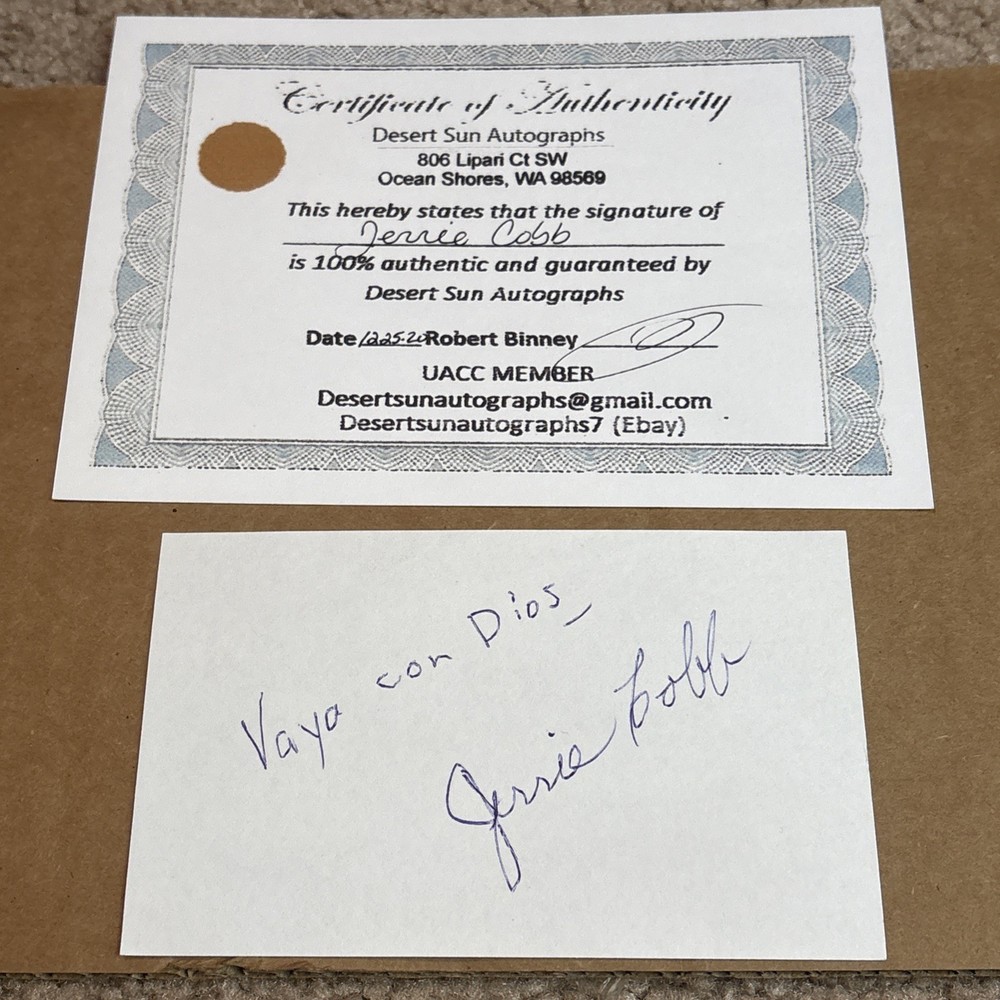 Certificate of Authenticity
Desert Sun Autographs
806 Lipari Ct SW
Ocean Shores, WA 98569
This hereby states that the signature of
Jerrie Cobb
is 100% authentic and guaranteed by
Desert Sun Autographs
Date 12-25-20 Robert Binney
UACC MEMBER
Desertsunautographs@gmail.com
Desertsunautographs7 (Ebay)
Vaya con Dios
Jerrie Cobb